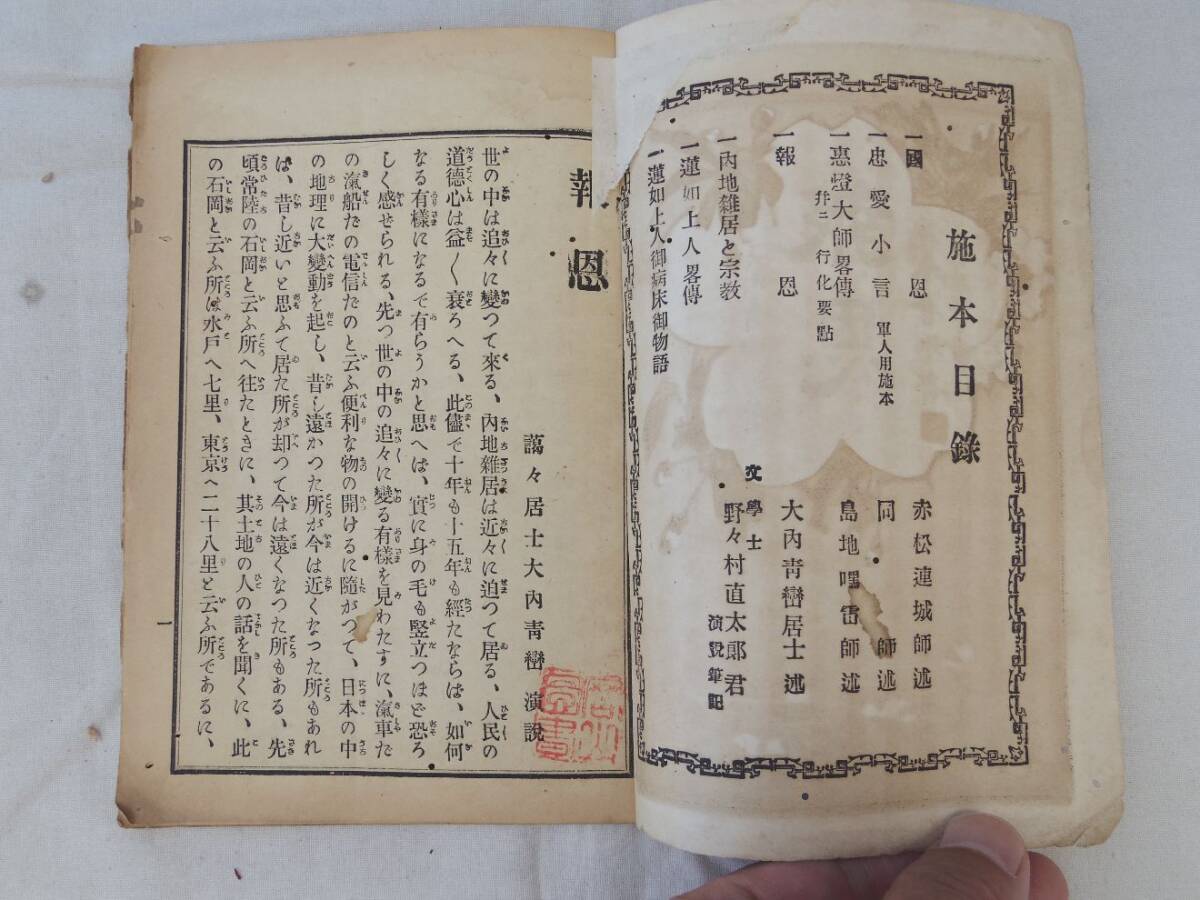 施本目錄
一國恩 赤松連城師述
一忠愛小言 軍人用施本 同師述
一惠燈大師畧傳 幷ニ行化要點 島地嘿雷師述
一報恩 大內靑巒居士述
一內地雜居と宗教 文學士 野々村直太郞君 演說筆記
一蓮如上人畧傳
一蓮如上人御病床御物語
報恩
藹々居士大內靑巒 演說
世の中は追々に變つて來る、內地雜居は近々に迫つて居る、人民の
道德心は益〱衰ろへる、此儘で十年も十五年も經たならば、如何
なる有樣になるで有らうかと思へば、實に身の毛も竪立つほど恐ろ
しく感せられる、先つ世の中の追々に變る有樣を見わたすに、滊車だ
の滊船だの電信だのと云ふ便利な物の開けるに隨がつて、日本の中
の地理に大變動を起し、昔し遠かつた所が今は近くなつた所もあれ
ば、昔し近いと思ふて居た所が却つて今は遠くなつた所もある、先
頃常陸の石岡と云ふ所へ往たときに、其土地の人の話を聞くに、此
の石岡と云ふ所は水戶へ七里、東京へ二十八里と云ふ所であるに、
一